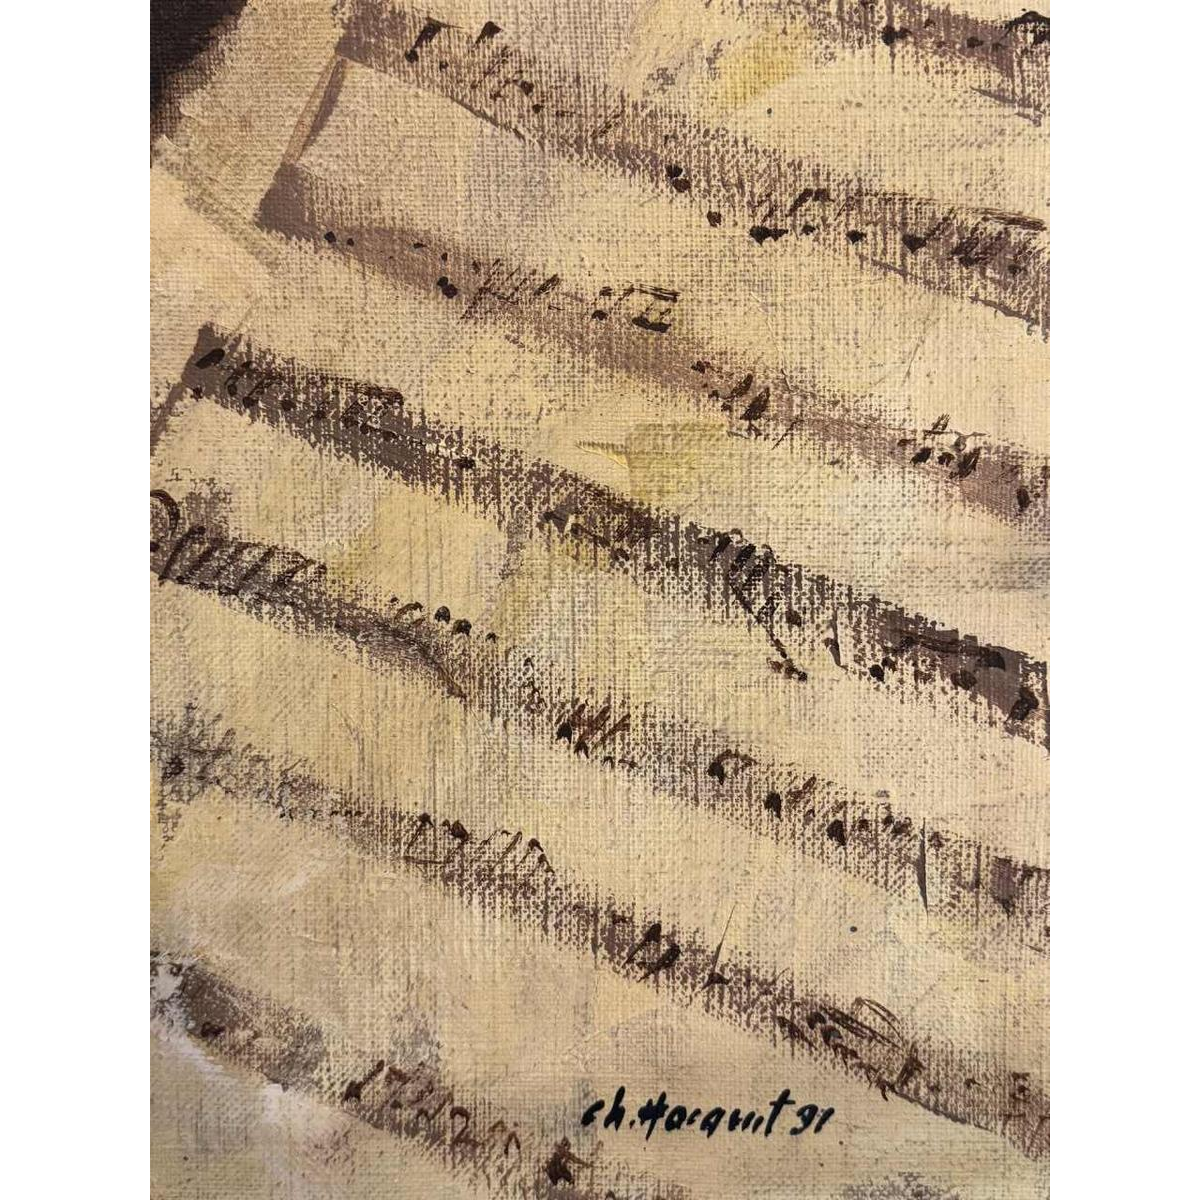 ch. Hocquet 91